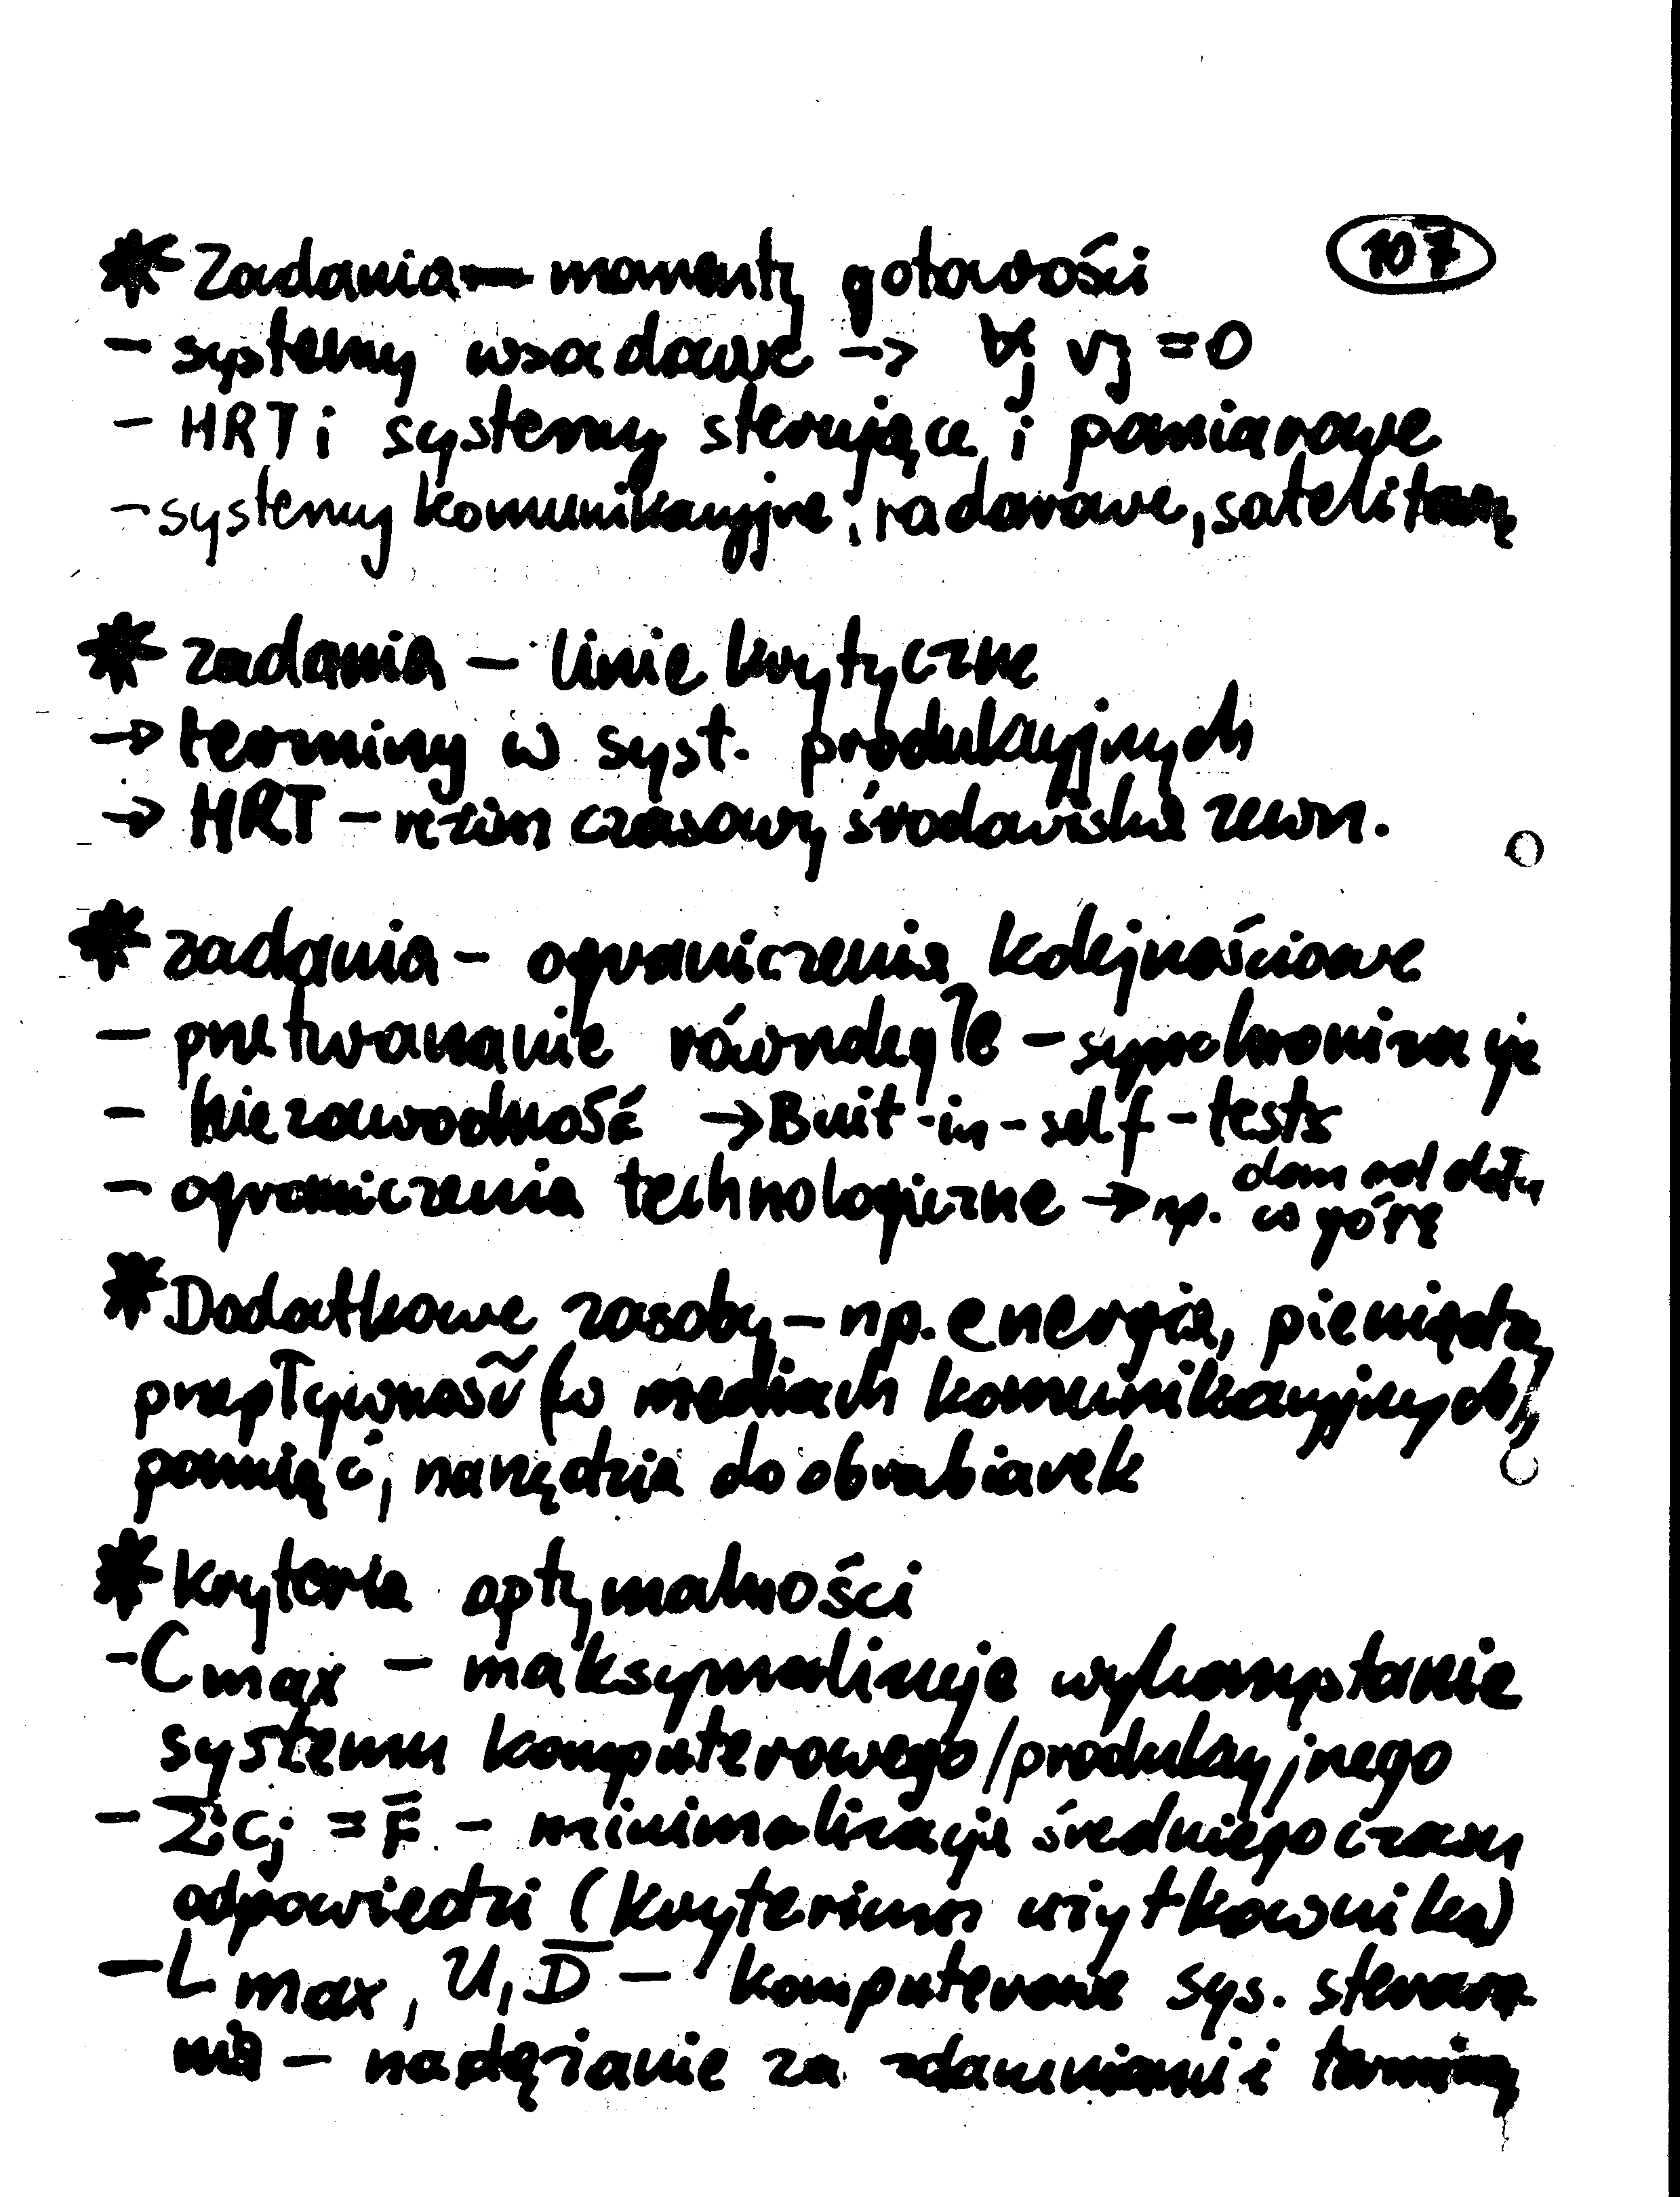 107
* Zadania — momenty gotowości
- systemy wsadowe -> ∀j rj = 0
- HRT i systemy sterujące i pomiarowe
- systemy komunikacyjne; radarowe, satelitarne
* zadania - linie krytyczne
-> terminy w syst. produkcyjnych
-> HRT - reżim czasowy środowiska zewn.
* zadania - ograniczenia kolejnościowe
- przetwarzanie równoległe - synchronizacja
- niezawodność -> Buit-in-self-tests
- ograniczenia technologiczne -> np. dom od dołu
w górę
* Dodatkowe zasoby - np. energia, pieniądze,
przepływność (w mediach komunikacyjnych),
pamięć, narzędzia do obrabiarek
* Kryteria optymalności
- Cmax - maksymalizuje wykorzystanie
systemu komputerowego/produkcyjnego
- ΣjCj = F̄ - minimalizacja średniego czasu
odpowiedzi (kryterium użytkownika)
- Lmax, U, D̄ - komputerowe sys. sterowa-
nia - nadążanie za zdarzeniami i